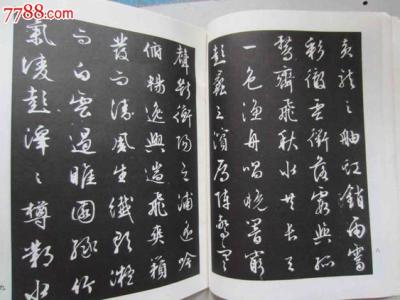 7788.com
黃龍之舳虹銷雨霽
彩徹雲衢落霞與孤
鶩齊飛秋水共長天
一色漁舟唱晚響窮
彭蠡之濱雁陣驚寒
聲斷衡陽之浦遙吟
俯暢逸興遄飛爽籟
發而清風生纖歌凝
而白雲遏睢園綠竹
氣凌彭澤之樽鄴水
八
九